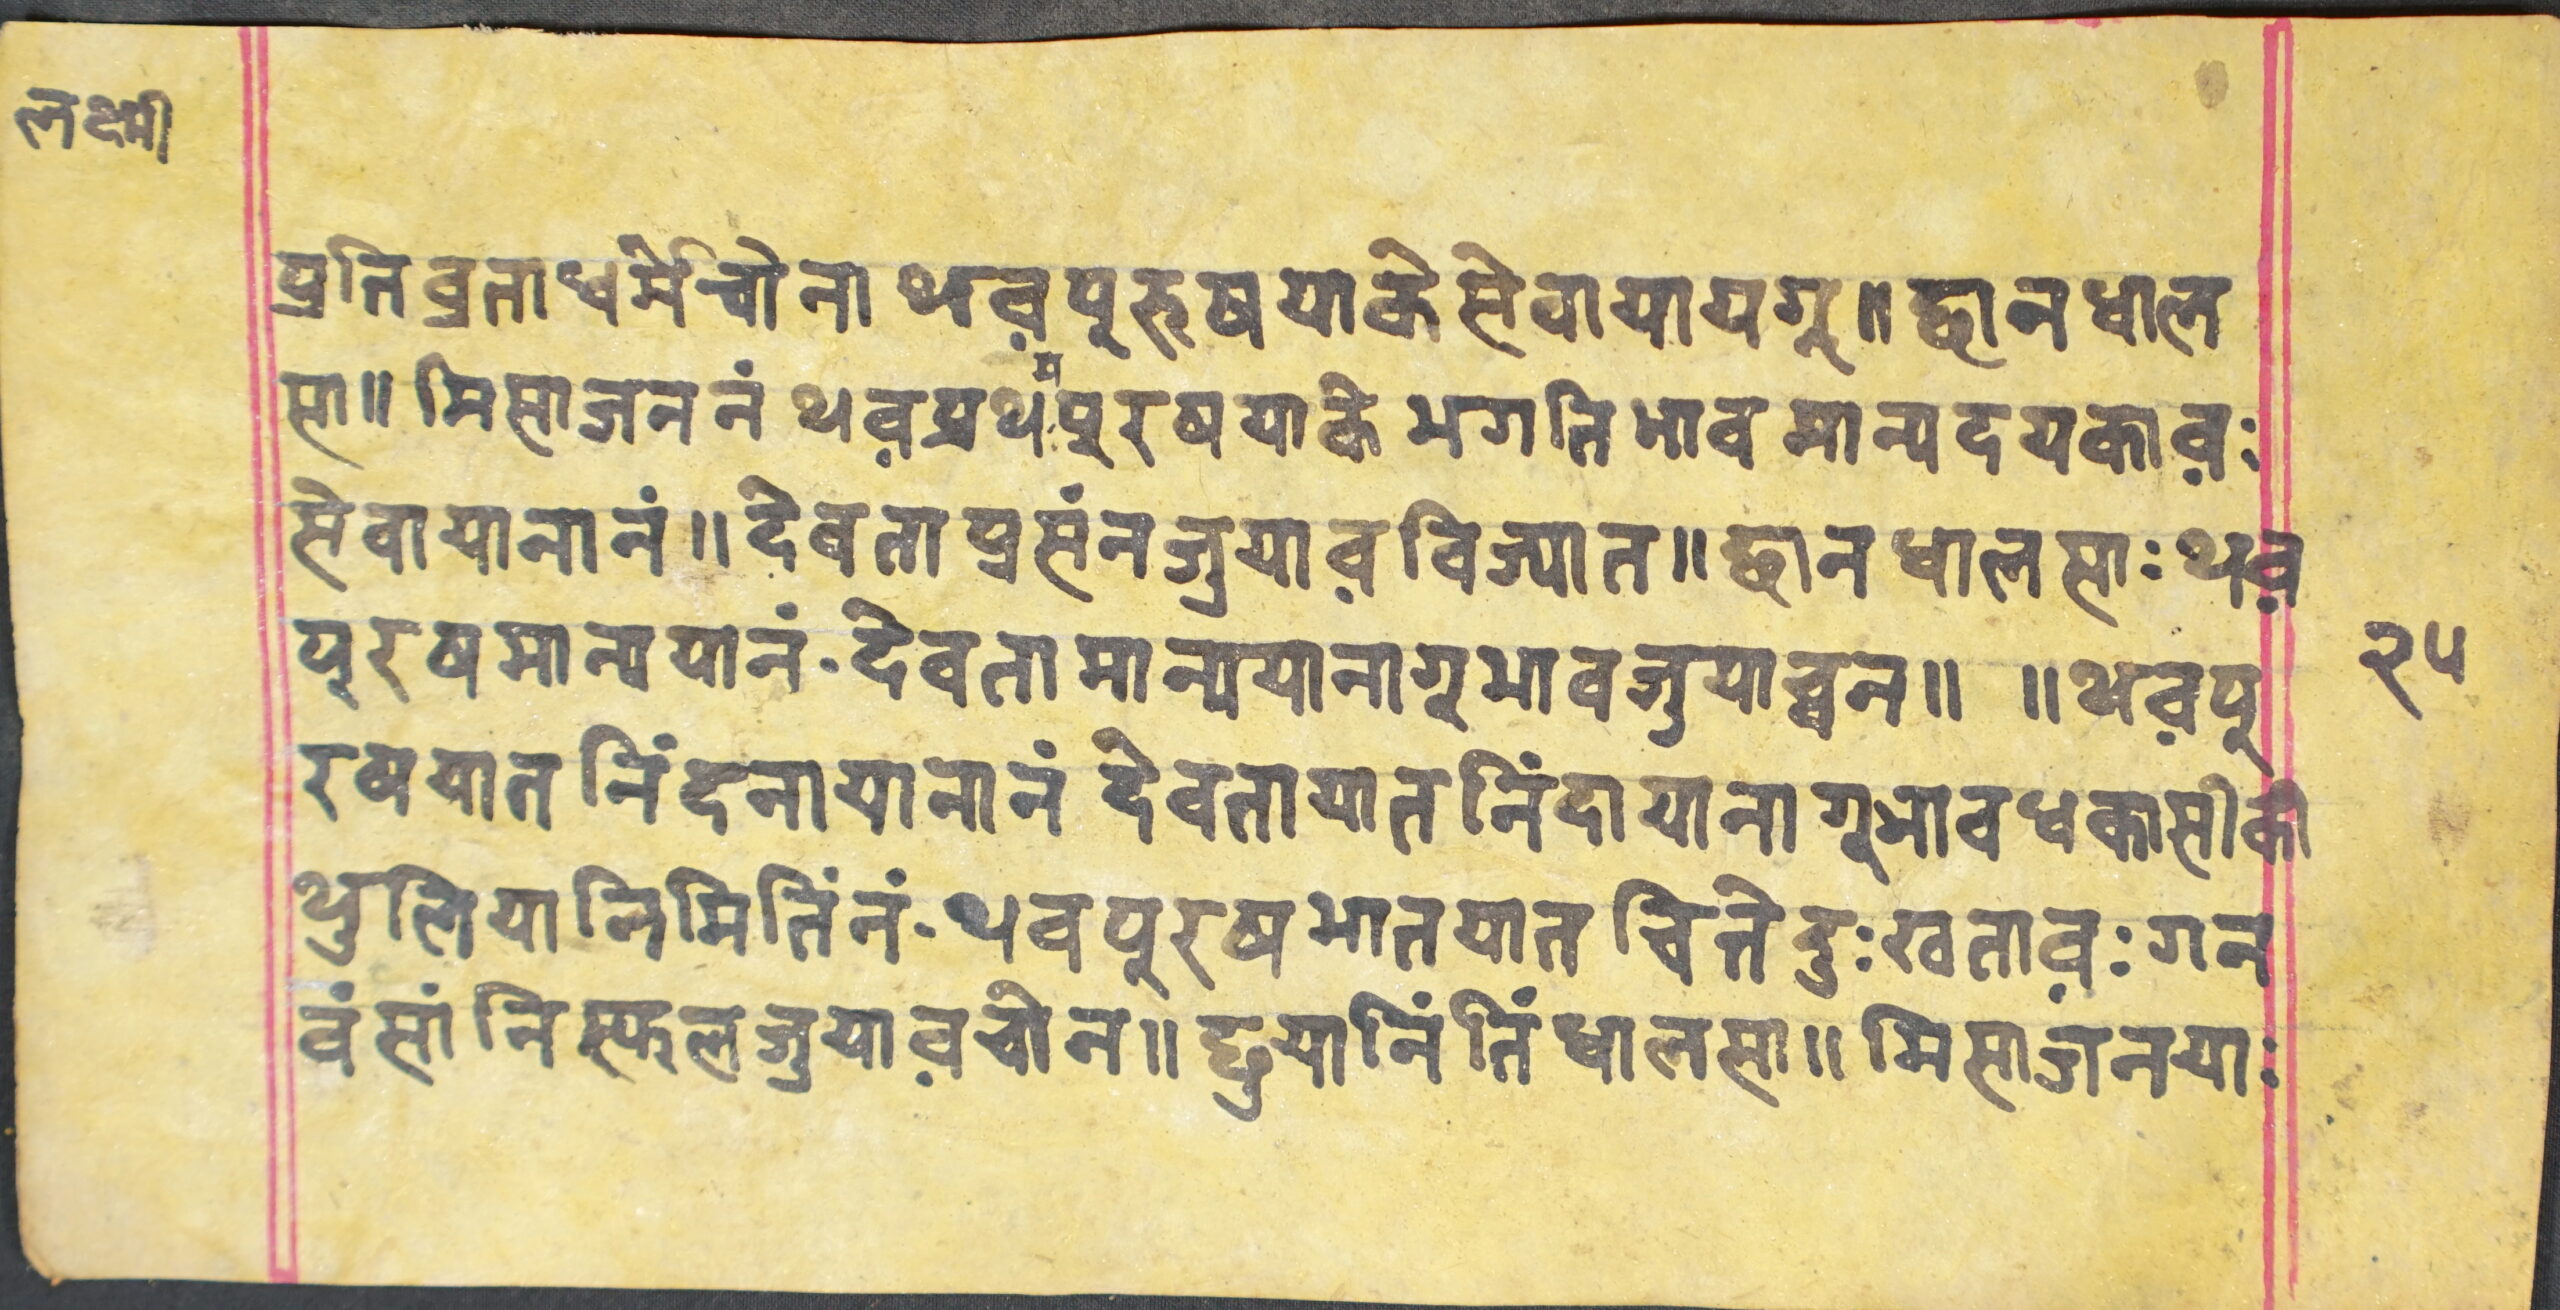 लक्ष्मी
प्रतिव्रताधर्मेचोना थव़पूरुषयाकेसेवायायगू॥ छानधाल
सा॥ मिसाजननं थव़प्रथमपूरषयाके भगतिभाव मान्यदयकाव़ः
सेवायानानं॥ देवता प्रसंनजुयाव़ विज्यात॥ छानधालसाः थव़
पूरषमान्ययानं· देवतामान्ययानागूभावजुयाव़न॥ ॥थव़पू
रषयात निंदनायानानं देवतायात निंदायानागूभावधकासीकी
थुलियानिमितिंनं· थवपूरषभातयात चित्ते दुःखताव़ः गन
वंसां निस्फलजुयाव़चोन॥ छुयानिंतिंधालसा॥ मिसाजनयाः
२५